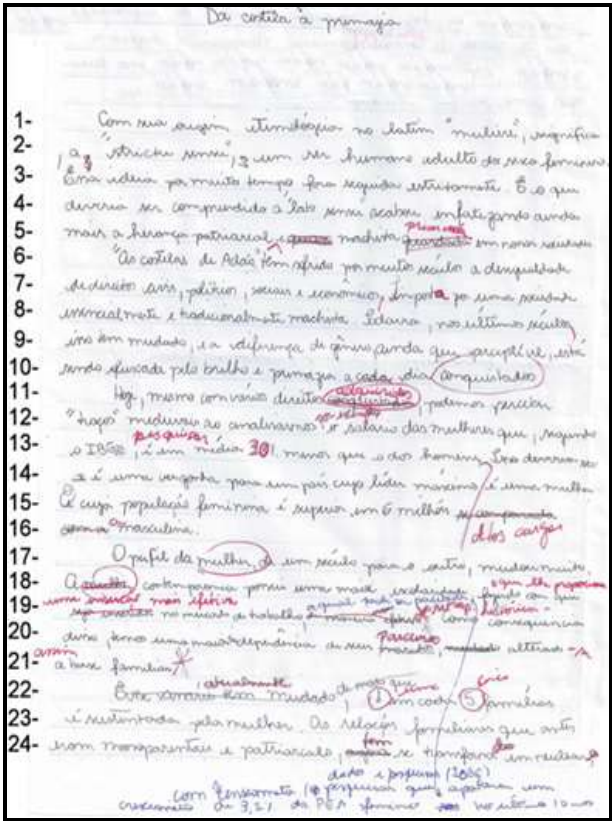 Da costela à primazia
1- Com sua origem etimológica no latim "muliere", significa
2- , a "strictu sensu", um ser humano adulto do sexo feminino.
3- ideia por muito tempo fora seguida estritamente. E o que
4- deveria ser compreendido a "lato sensu acabou enfatizando ainda
5- mais a herança patriarcal e machista em nossa sociedade
6- "As costelas de Adão" têm sofrido por muitos séculos a desigualdade
7- de direitos civis, político, sociais e econômicos, por uma sociedade
8- essencialmente e tradicionalmente machista. nos últimos séculos,
9- isso tem mudado, e a diferença de gênero, ainda que perceptível, está
10- sendo ofuscada pelo brilho e primazia a cada dia conquistados
11- Hoje, mesmo com vários direitos adquiridos, podemos perceber
12- "traços" medievais ao analisarmos o salário das mulheres que, segundo
13- o IBGE, pesquisas é em média 30% menor que o dos homens. Isso deveria ser
14- e é uma vergonha para um país cujo líder máximo é uma mulher
15- E cuja população feminina é superior em 6 milhões
16- masculina. altos cargos
17- O perfil da mulher, de um século para o outro, mudou muito.
18- A contemporânea possui uma maior escolaridade, fazendo com que
19- uma inserção mais efetiva no mercado de trabalho Como consequência
20- disso, temos uma maior dependência de seu parceiro, alterado
21- assim a base familiar
22- atualmente mudado, de modo que, 1 em cada 5 famílias
23- é sustentada pela mulher. As relações familiares que antes
24- eram monoparentais e patriarcais, se transformado em nucleares,
dados e pesquisas (IBGE)
pesquisas que apontam um
crescimento de 3,2% da PEA feminina nos últimos 10 anos